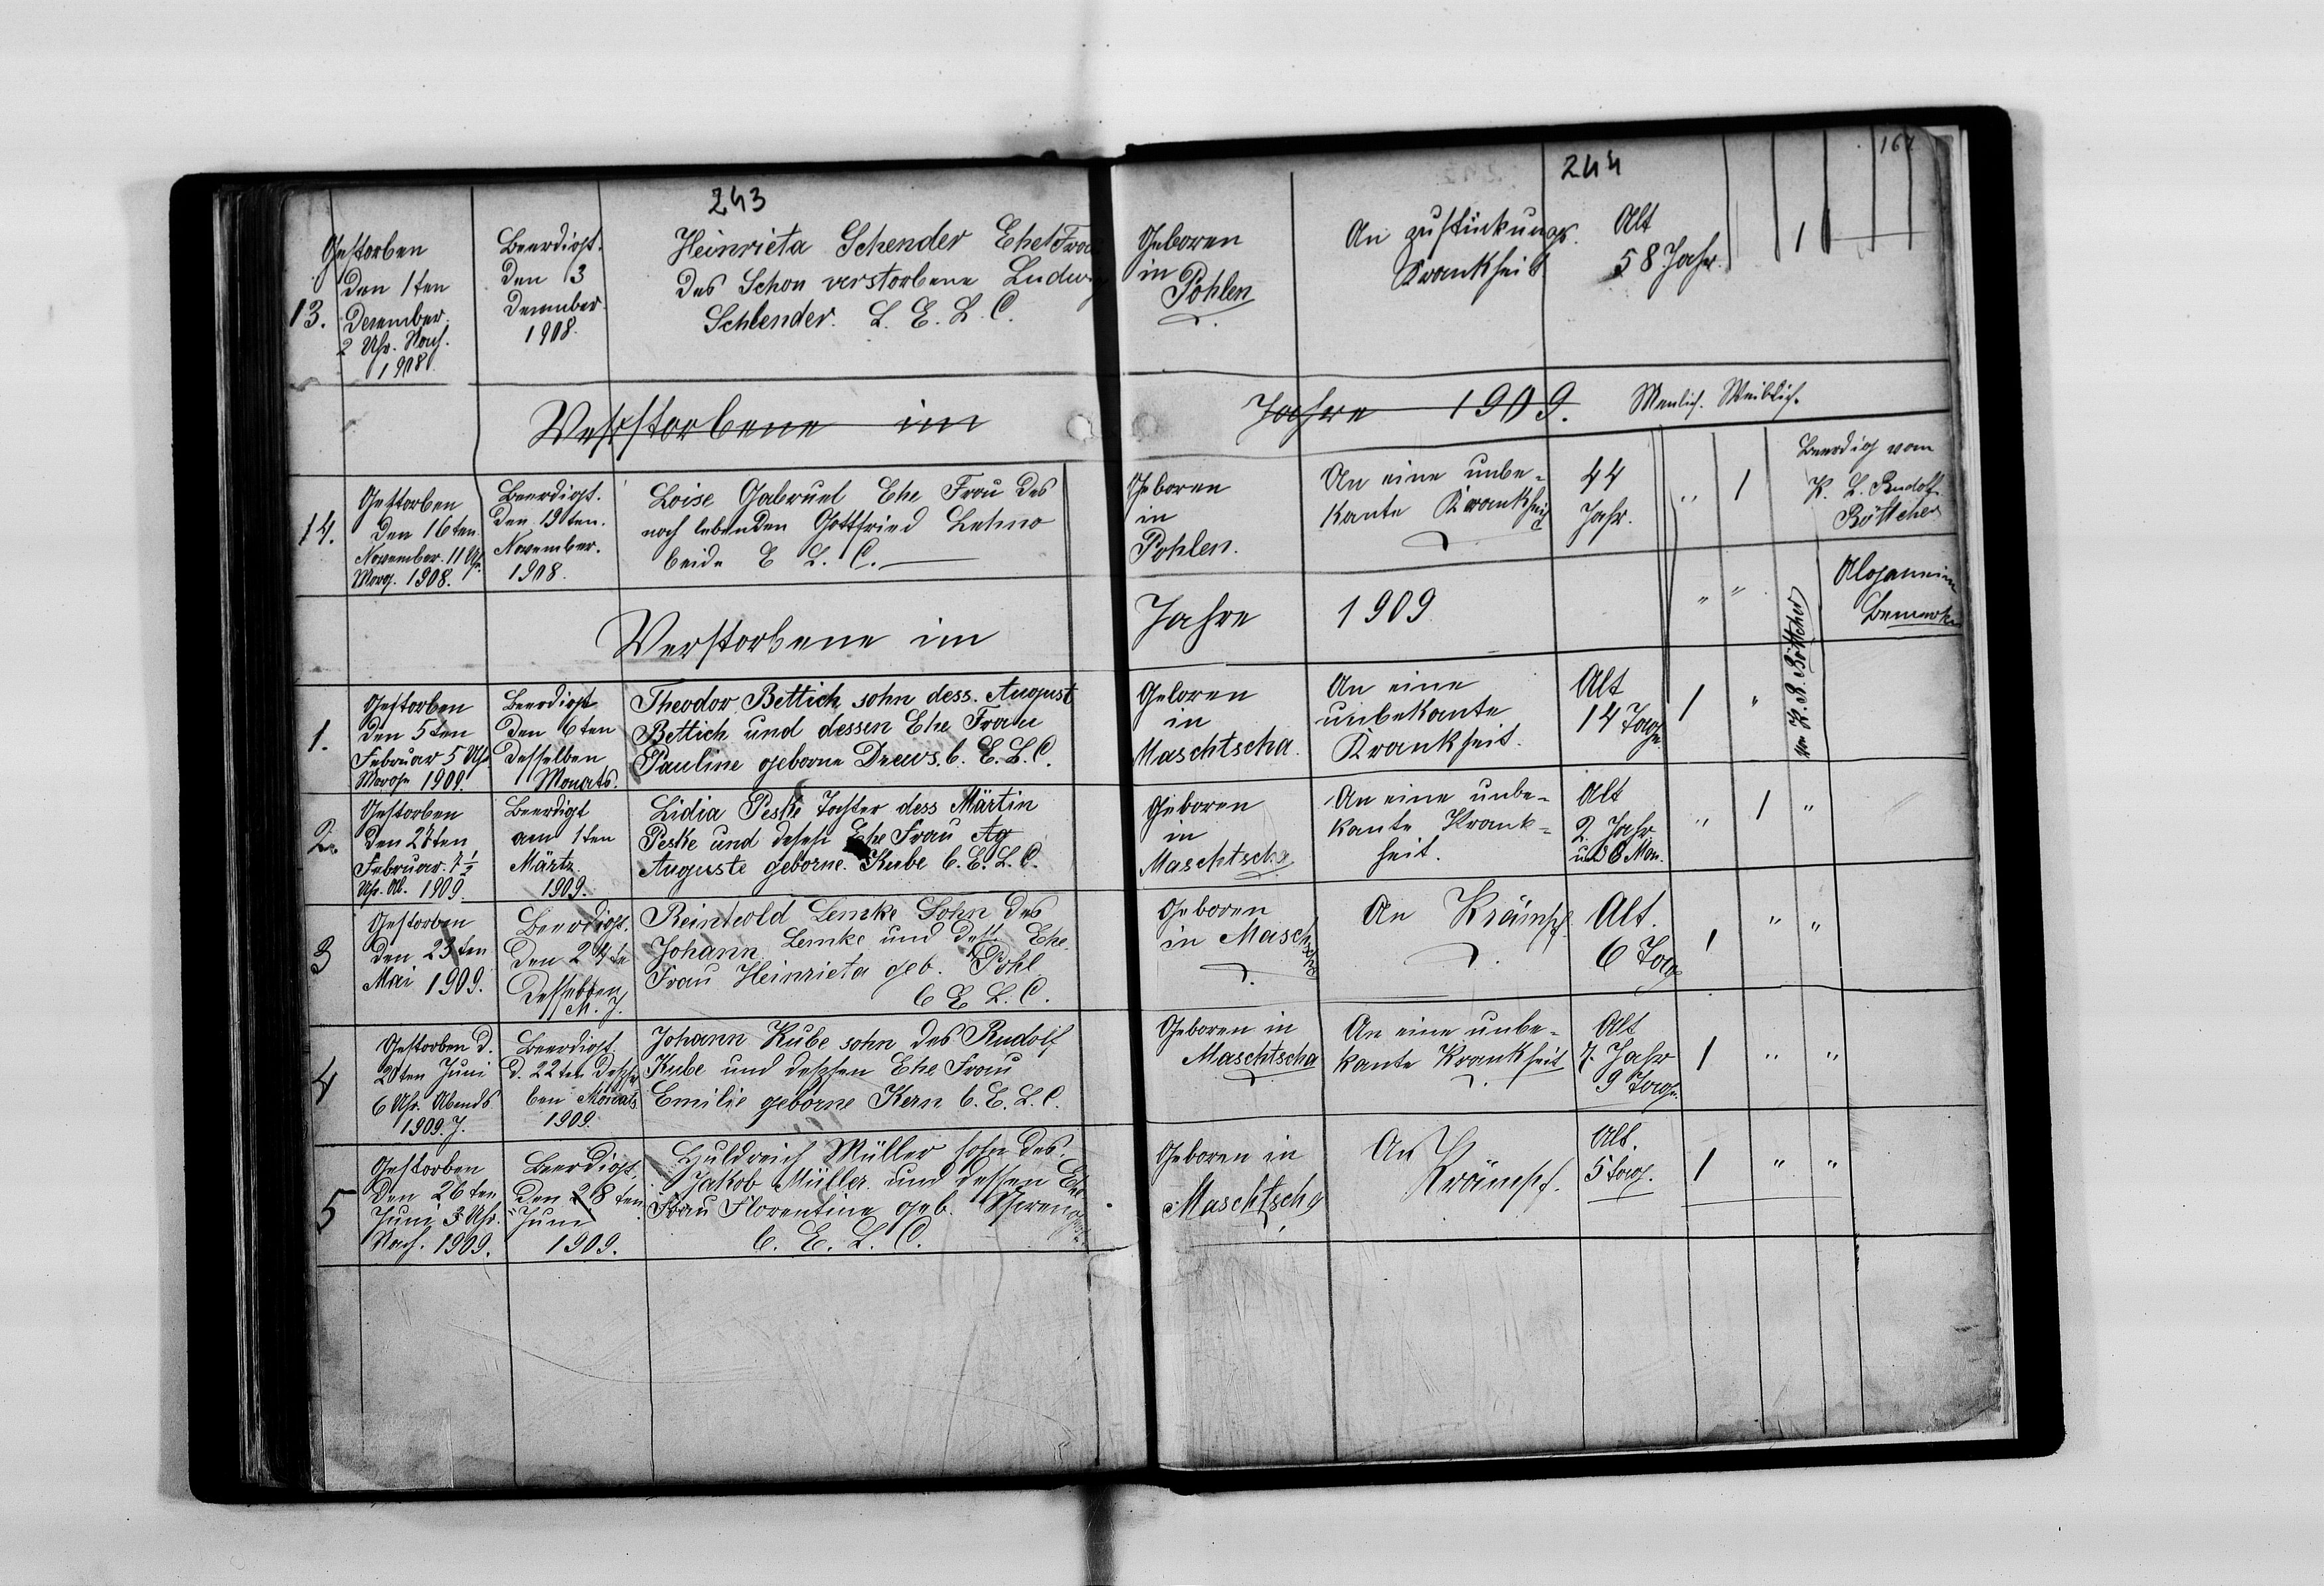 243
244
167
13.
Gestorben
den 1ten
December
2 Uhr. Nach.
1908.
Beerdigt.
den 3
December
1908.
Heinrieta Schender Ehe Frau
des Schon verstorbene Ludwig
Schlender. L. E. L. C.
Geboren
in
Pohlen
An
Krankheit
Alt
58 Jahr.
1
Verstorbene im Jahre 1909.
Menlich. Weiblich.
14.
Gestorben
den 16ten
November. 11 Uhr.
Morg. 1908.
Beerdigt.
den 19ten.
November.
1908.
Loise Gabruel Ehe Frau des
noch lebenden Gottfried Lehno
beide E L. C.
Geboren
in
Pohlen.
An eine unbe-
kante Krankheit
44
Jahr.
" 1
Beerdig vom
K. L. Rudolf
Böttcher
Verstorbene im Jahre 1909
" "
Bemerk
1.
Gestorben
den 5ten
Februar 5 Uhr
Morge 1909.
Beerdigt
den 6ten
desselben
Monats.
Theodor Bettich sohn dess. August
Bettich und dessen Ehe Frau
Pauline geborne Drews. b. E. L. C.
Geboren
in
Maschtscha.
An eine
unbekante
Krankheit.
Alt
14 Tage
1 "
von K. L. R. Böttcher
2.
Gestorben
den 27ten
Februar. 7 1/2
Uhr. Ab. 1909.
Beerdigt
am 1ten
Märtz.
1909.
Lidia Peske Tochter dess Märtin
Peske und dessen Ehe Frau Ag
Auguste geborne. Kube b. E. L. C.
Geboren
in
Maschtscha
An eine unbe-
kante Krank-
heit.
Alt
2. Jahr
und 6 Mon.
" 1 "
3
Gestorben
den 23ten
Mai 1909.
Beerdigt.
den 24te
desselben
M. J.
Reinhold Lemke Sohn des
Johann Lemke und dess Ehe.
Frau Heinrieta geb. Pohl
b E L. C.
Geboren
in Maschtscha
An Krämpf.
Alt.
6 Tage
1 " "
4
Gestorben d.
20ten Juni
6 Uhr. Abends
1909. J.
Beerdigt
d. 22ten dessel
ben Monats
1909.
Johann Kube sohn des Rudolf
Kube und dessen Ehe Frau
Emilie geborne Kern b. E. L. C.
Geboren in
Maschtscha
An eine unbe-
kante Krankheit
Alt
7. Jahr
9 Tage.
1 " "
5
Gestorben
den 26ten
Juni 3 Uhr.
Nach. 1909.
Beerdigt.
den 28ten
Juni
1909.
Huldreich Müller sohn des.
Jakob Müller und dessen Ehe
Frau Florentine geb.
b. E. L. C.
Geboren in
Maschtscha
An
Krämpf.
Alt.
5 Tage.
1 " "